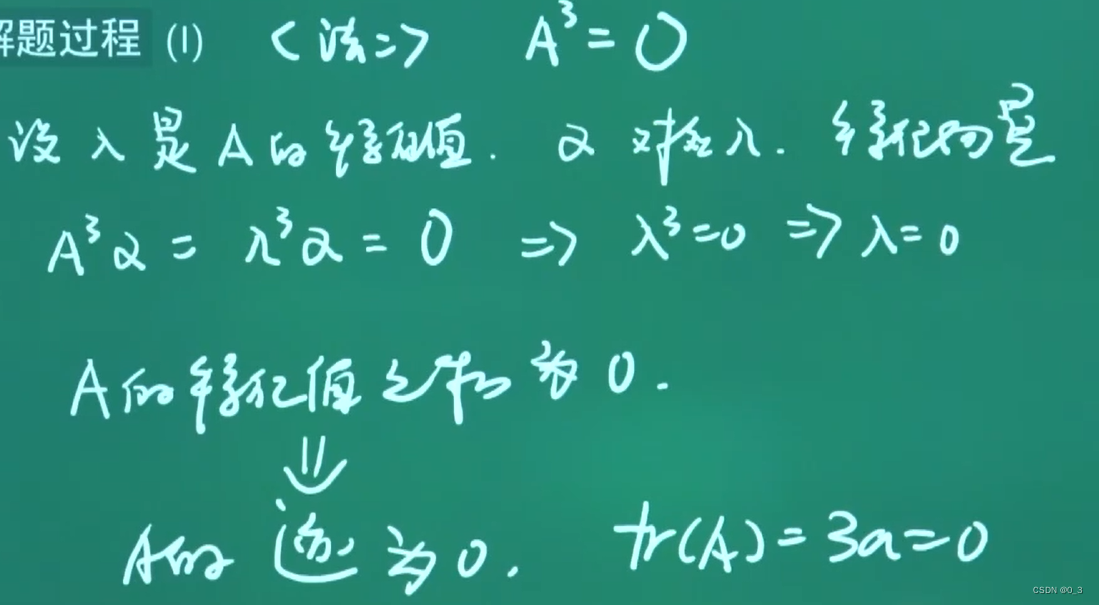 解题过程 (1) <法二> A³=0
设 λ 是 A 的特征值. α 对应 λ. 特征向量
A³α = λ³α = 0 ⇒ λ³=0 ⇒ λ=0
A 的特征值之和为 0.
⇓
A的迹为0. tr(A)=3a=0
CSDN @0_3